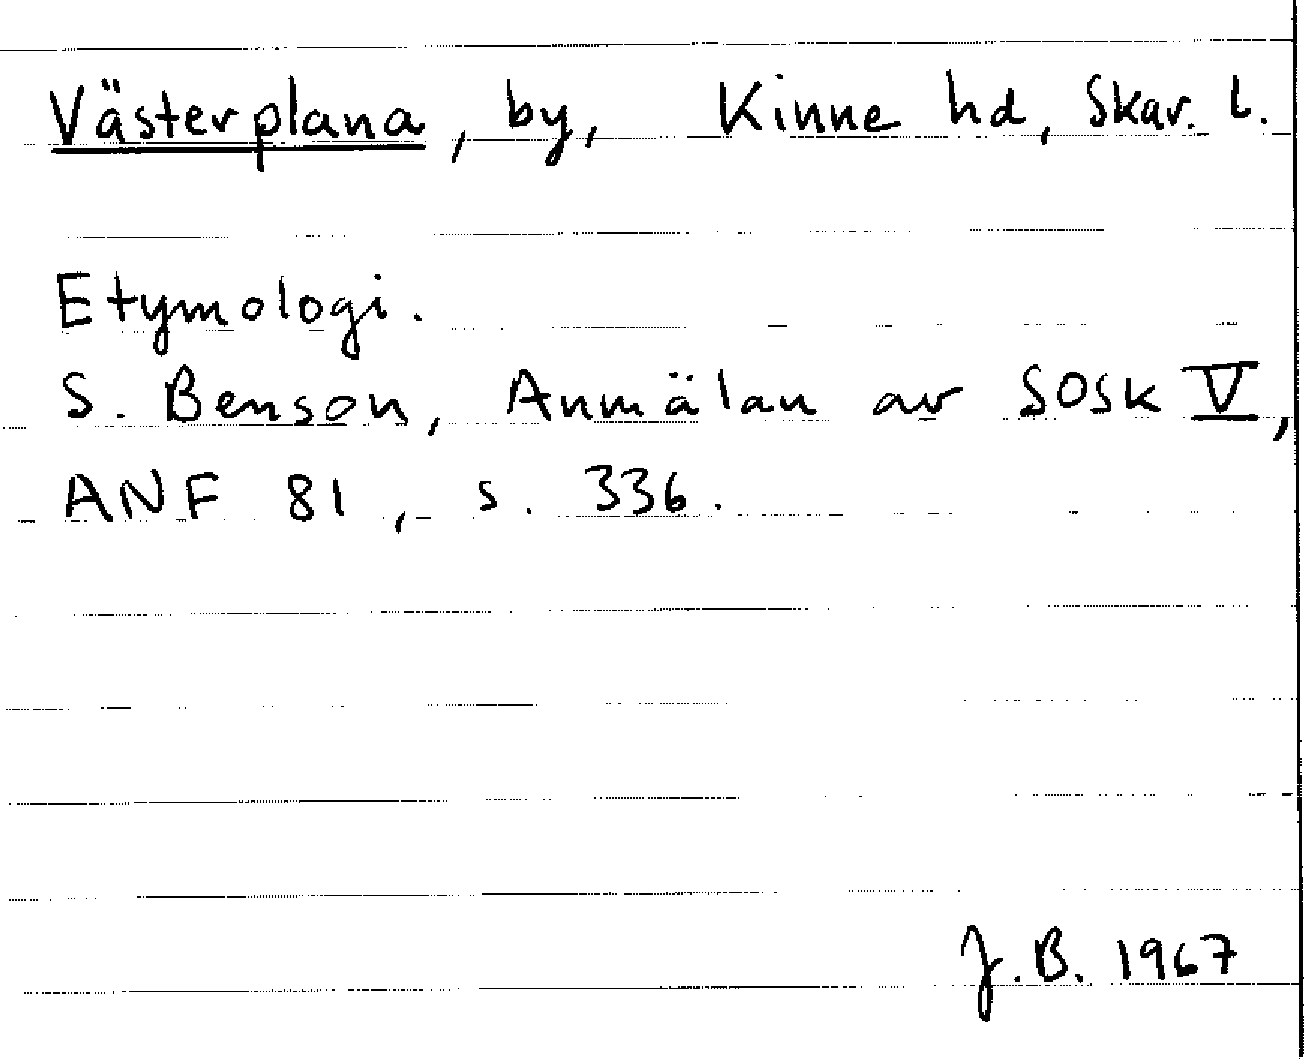 Västerplana, by, Kinne hd, Skar. l.
Etymologi.
S. Benson, Anmälan av SOSk V,
ANF 81, s. 336.
J.B. 1967